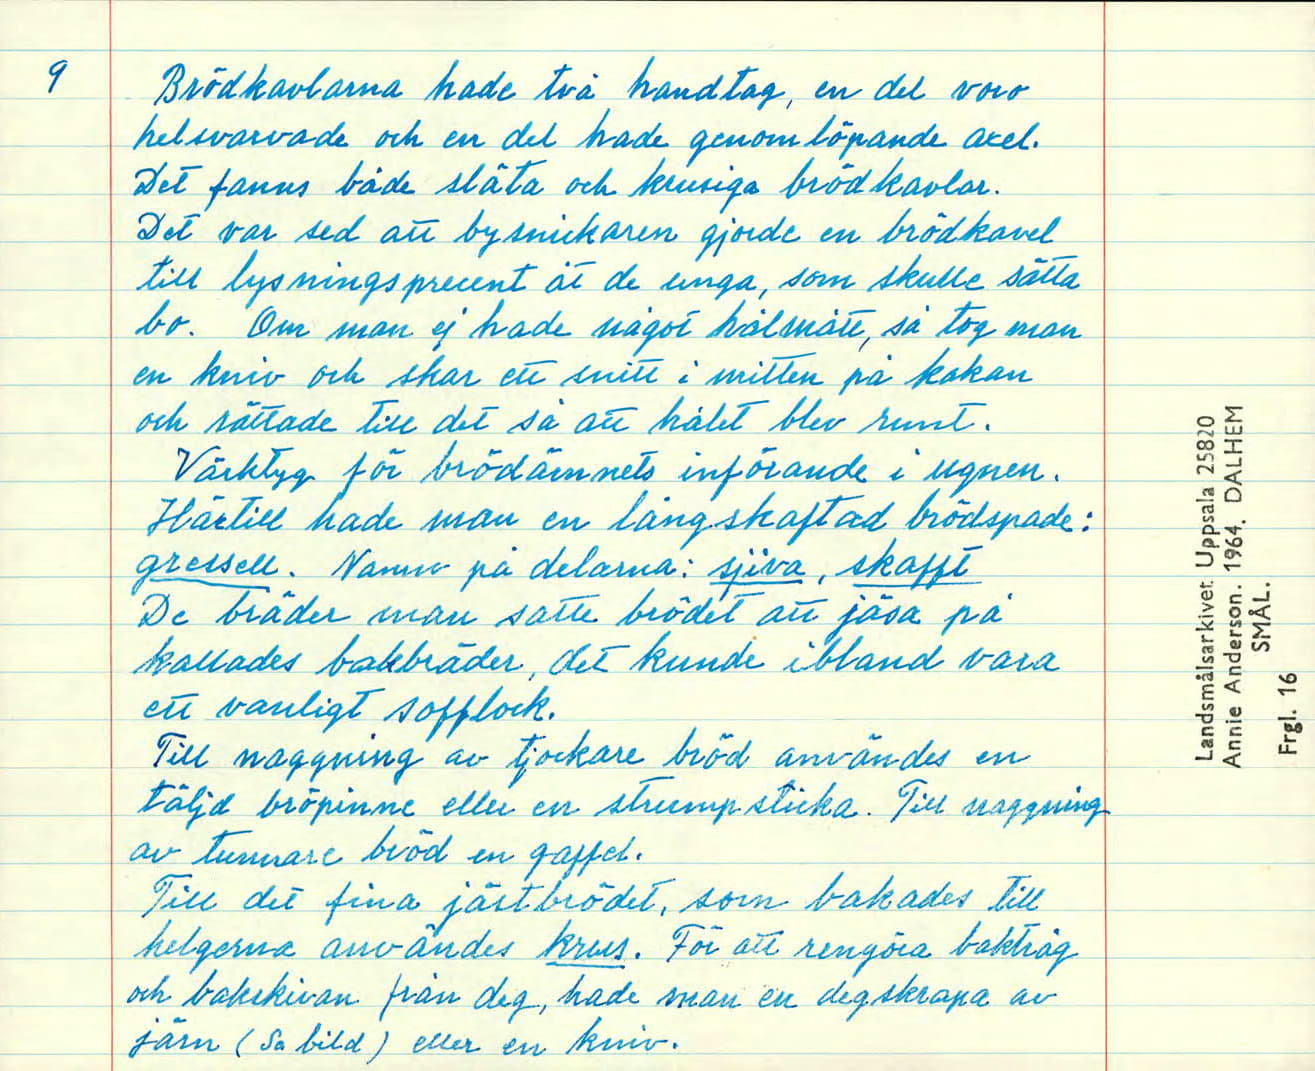 9
Brödkavlarna hade två handtag, en del voro
helsvarvade och en del hade genomlöpande axel.
Det fanns både släta och krusiga brödkavlar.
Det var sed att bysnickaren gjorde en brödkavel
till lysningsprecent åt de unga, som skulle sätta
bo. Om man ej hade något hålmått, så tog man
en kniv och skar ett snitt i mitten på kakan
och rättade till det så att hålet blev runt.
Värktyg för brödämnets införande i ugnen.
Härtill hade man en långskaftad brödspade:
gressell. Namn på delarna: sjiva, skafft
De bräder man satte brödet att jäsa på
kallades bakbräder, det kunde ibland vara
ett vanligt sofflock.
Till naggning av tjockare bröd användes en
täljd bröpinne eller en strumpsticka. Till naggning
av tunnare bröd en gaffel.
Till det fina jästbrödet, som bakades till
helgerna användes krus. För att rengöra baktråg
och bakskivan från deg, hade man en degskrapa av
järn (Se bild) eller en kniv.
Landsmålsarkivet. Uppsala 25820
Annie Anderson. 1964. DALHEM
SMÅL.
Frgl. 16